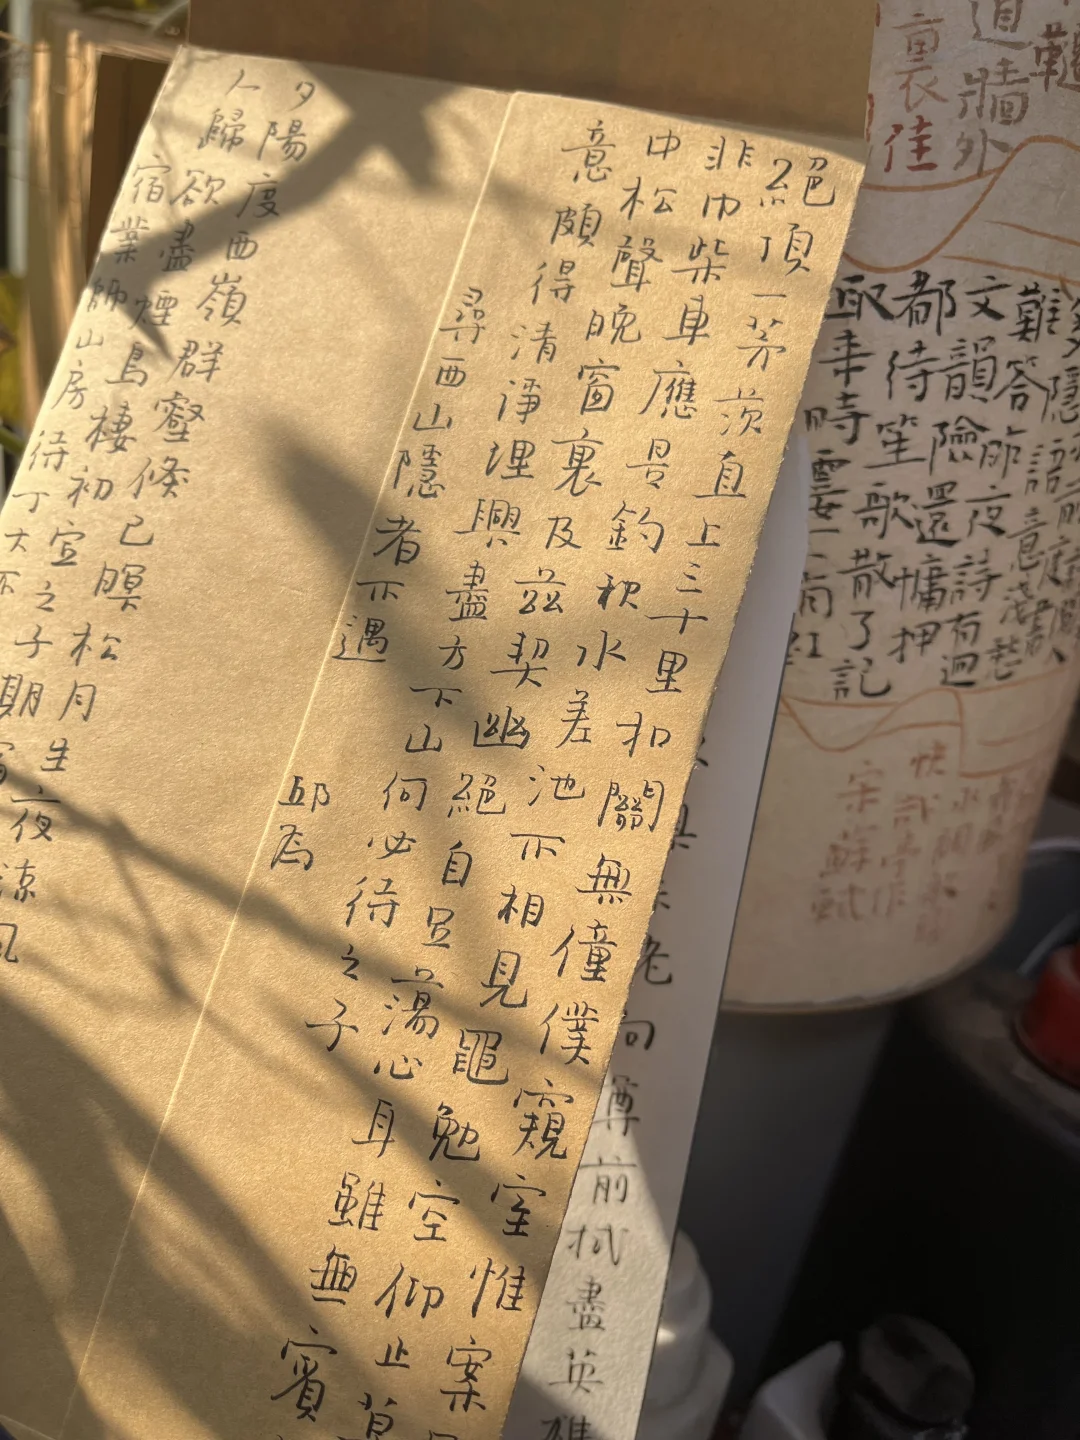 絕頂一茅茨直上三十里扣關無僮僕窺室惟案
非巾柴車應是釣秋水差池不相見黽勉空仰止草
中松聲晚窗裏及茲契幽絕自足蕩心耳雖無賓
意頗得清淨理興盡方下山何必待之子
尋西山隱者不遇
邱為
夕陽度西嶺群壑倏已暝松月生夜涼風
人歸欲盡煙鳥棲初定之子期宿
宿業師山房待丁大不
老向尊前拭盡英雄
道牆外
裏佳
難答昨夜詩有迴
文韻險還慵押
都待笙歌散了記
取來時霎
宋蘇軾